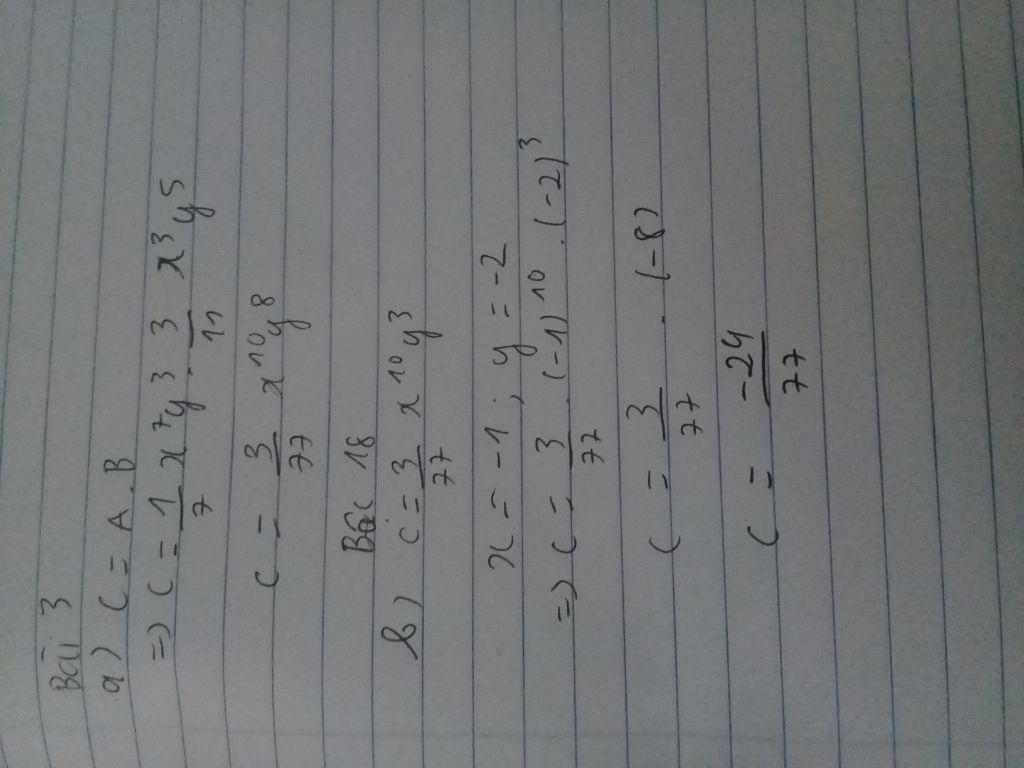 Bài 3
a) C = A.B
=) C = 1/7 x⁷y³ . 3/11 x³y⁵
C = 3/77 x¹⁰y⁸
Bậc 18
b) C = 3/77 x¹⁰y³
x = -1 ; y = -2
=) C = 3/77 . (-1)¹⁰ . (-2)³
C = 3/77 . (-8)
C = -24/77